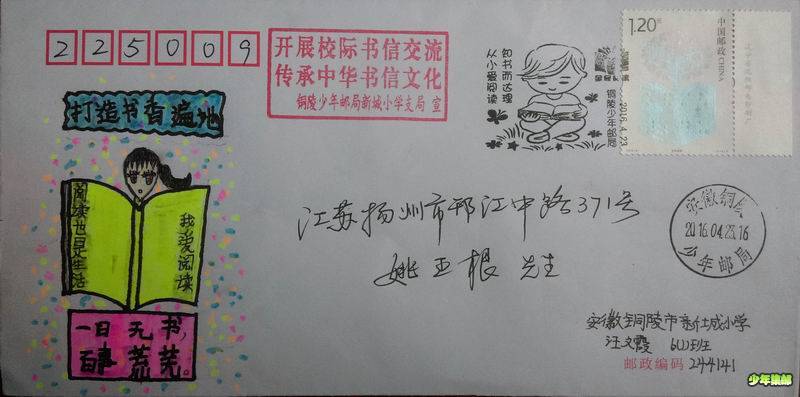 225009
开展校际书信交流
传承中华书信文化
铜陵少年邮局新城小学支局 宣
知书而达理
从小爱阅读
铜陵少年邮局
2016.4.23
1.20元
中国邮政 CHINA
打造书香遍地
阅读也是生活
我爱阅读
一日无书,
百事荒芜。
江苏扬州市邗江中路371号
姚玉根 先生
安徽铜陵
2016.04.23.16
少年邮局
安徽铜陵市新城小学
汪文霞
邮政编码 244141
少年集邮